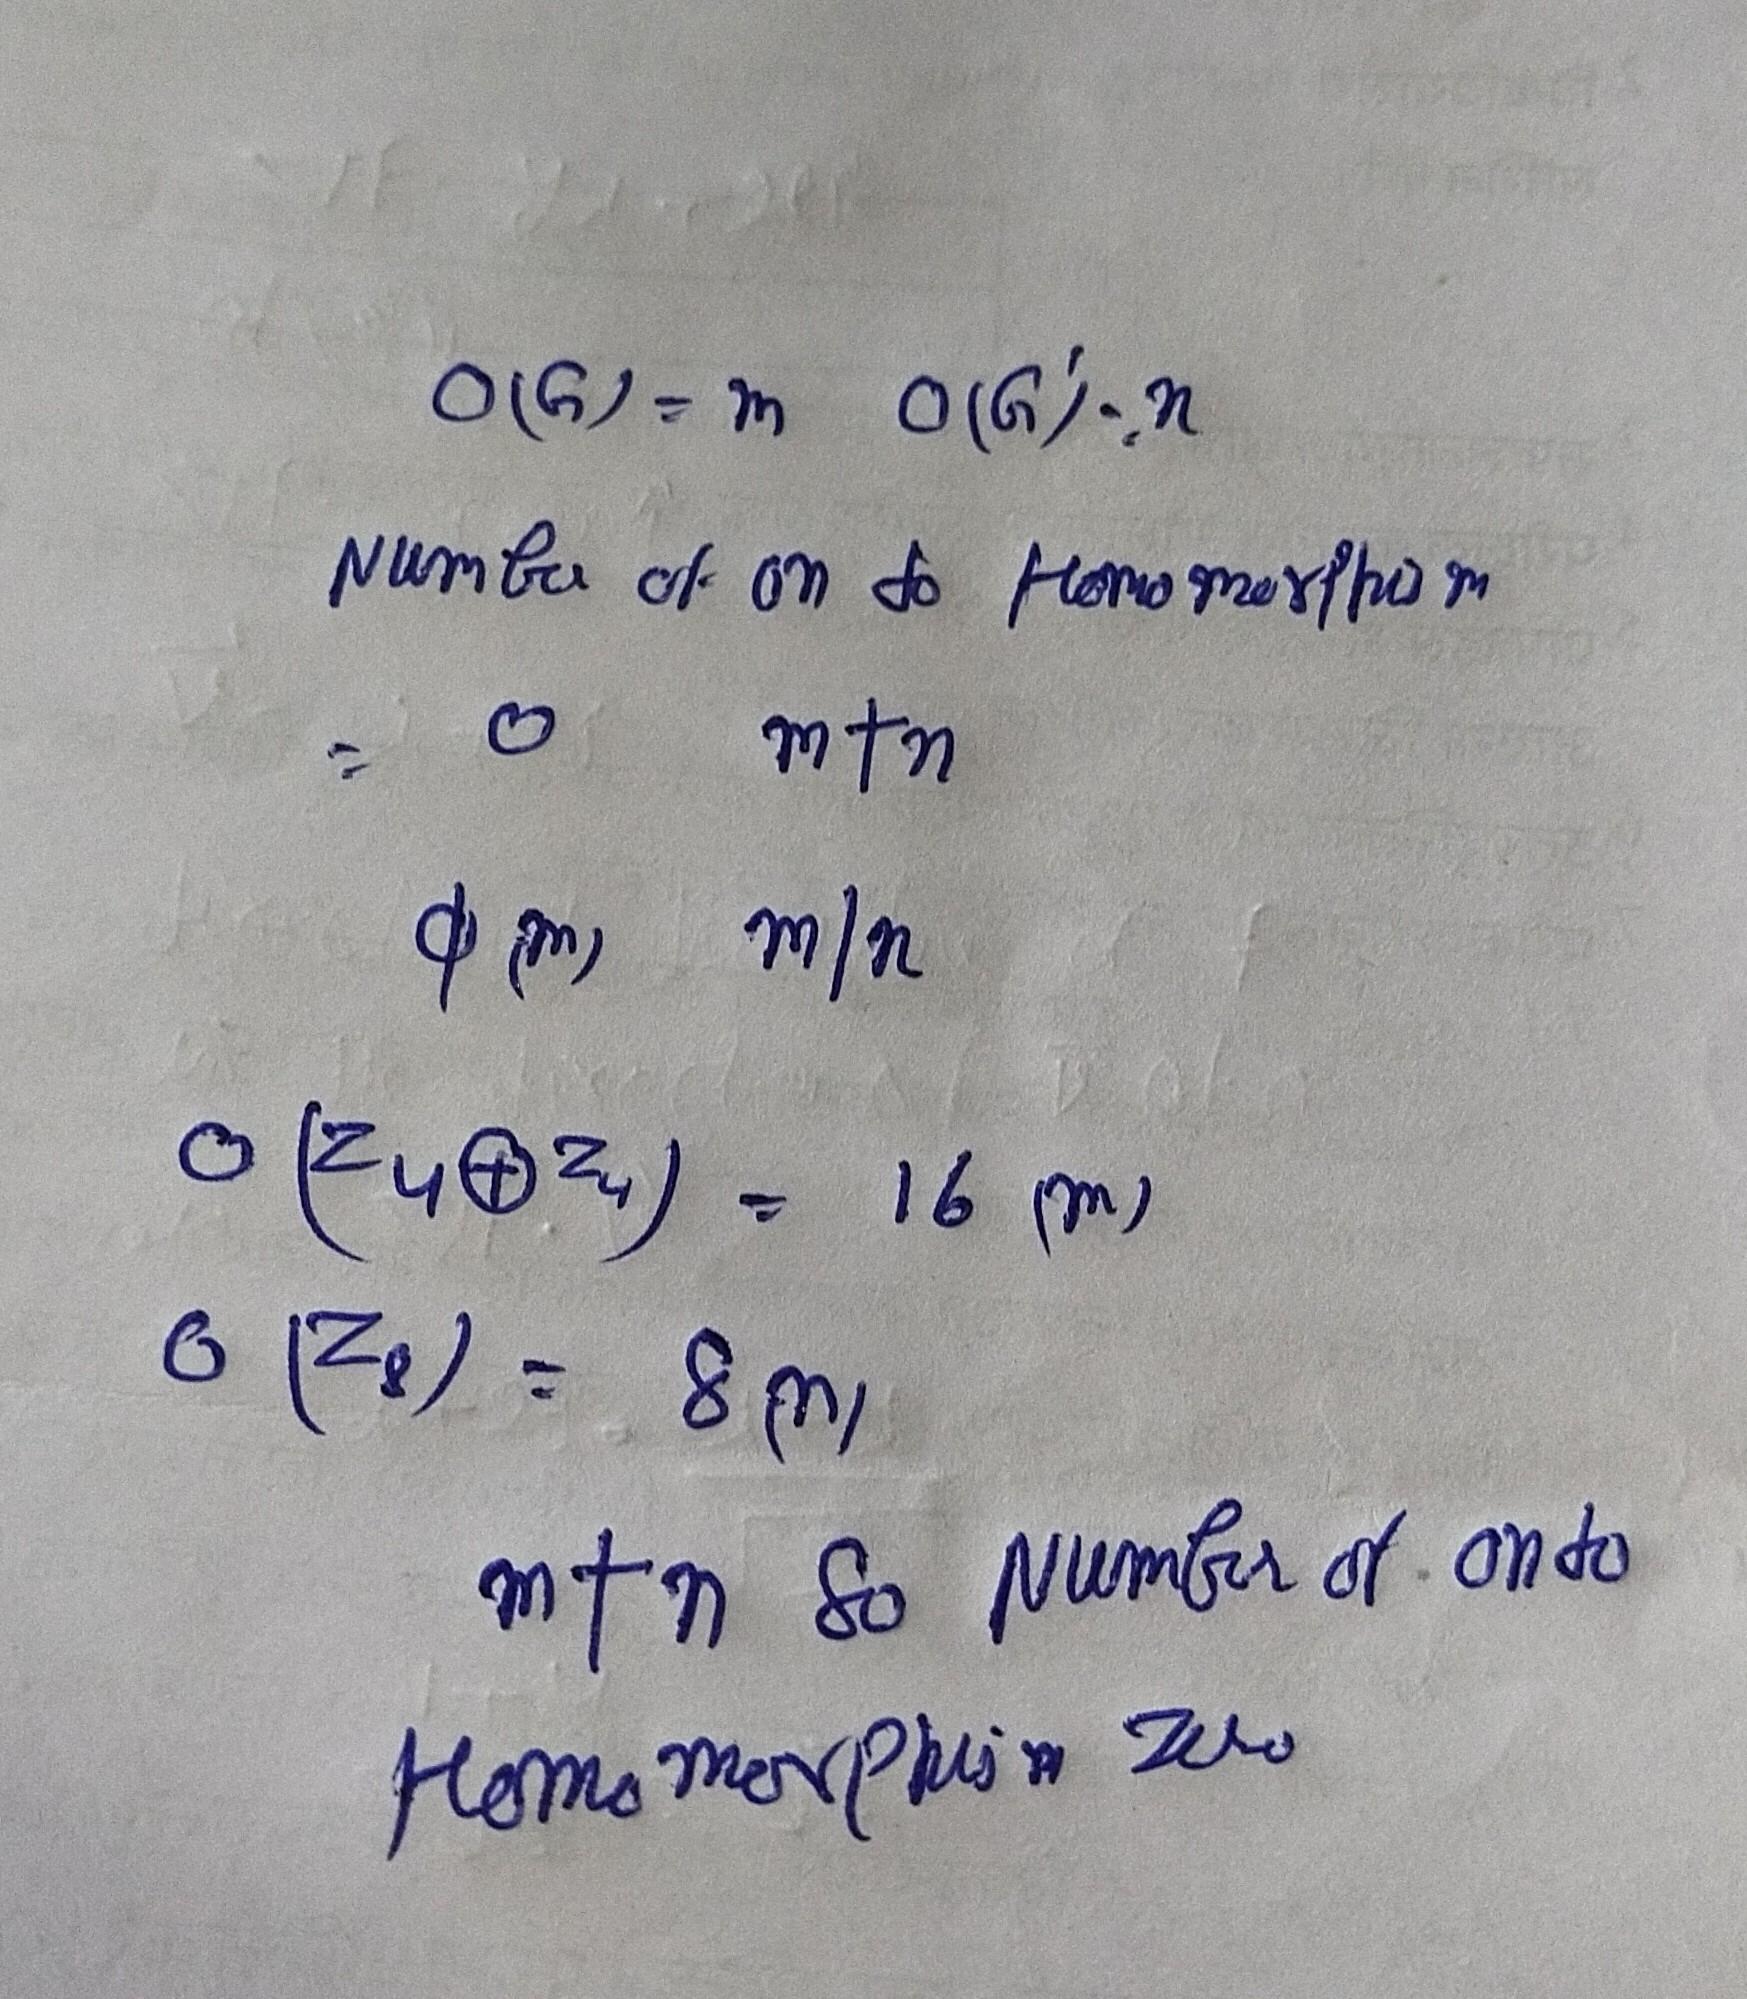 O(G) = m O(G') = n
Number of on to Homomorphism
= 0 m∤n
ϕ(m) m/n
O(Z₄⊕Z₄) = 16 (m)
O(Z₈) = 8 (n)
m∤n So Number of onto
Homomorphism Zero